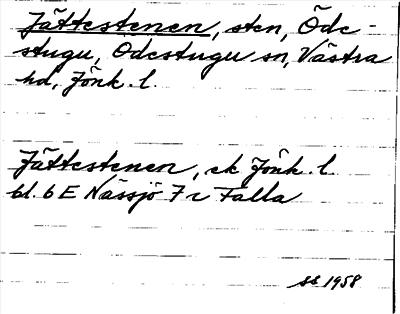 Jättestenen, sten, Öde-
stugu, Ödestugu sn, Västra
hd, Jönk. l.
Jättestenen, ek Jönk. l.
bl. 6 E Nässjö 7 c Falla
SE 1958